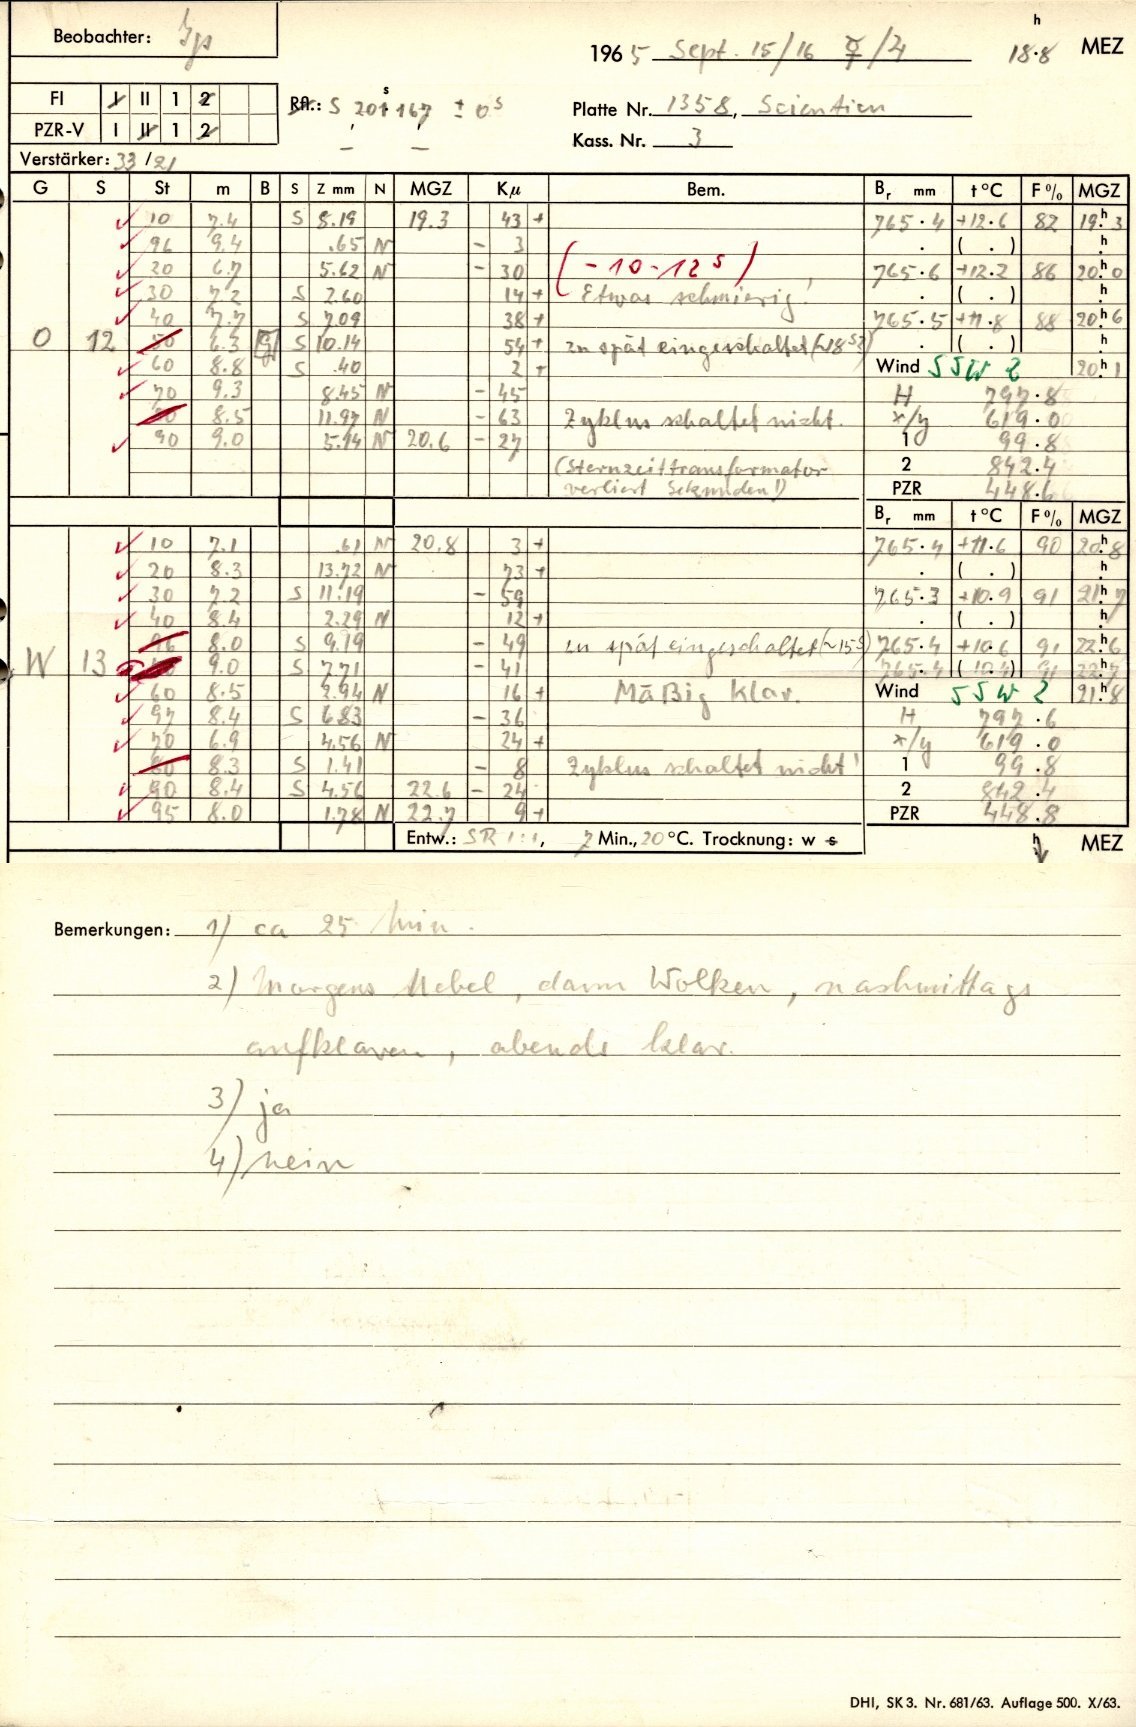 Beobachter:
1965 Sept. 15/16 ☿/♃ 18.8 h MEZ
FI I II 1 2
PZR-V I II 1 2
Rfl.: S 201 s 167 ± 0 s
Platte Nr. 1358, Scientien
Kass. Nr. 3
Verstärker: 33/21
G S St m B S Z mm N MGZ Kμ Bem. Br mm t °C F % MGZ
10 7.4 S 8.19 19.3 43 + 765.4 +12.6 82 19.h3
96 9.4 .65 N - 3 . ( . ) h
20 6.7 5.62 N - 30 (-10-12 s) 765.6 +12.2 86 20.h0
30 7.2 S 2.60 14 + Etwas schmierig! . ( . ) h
40 7.7 S 7.09 38 + 765.5 +11.8 88 20.h6
O 12 50 6.3 S 10.14 54 + zu spät eingeschaltet (~18 s?) . ( . ) h
60 8.8 S .40 2 + Wind SSW 2 20.h1
70 9.3 8.45 N - 45 H 797.8
80 8.5 11.97 N - 63 Zyklus schaltet nicht. x/y 619.0
90 9.0 5.14 N 20.6 - 27 1 99.8
(Sternzeittransformator 2 842.4
verliert Sekunden!) PZR 448.6
Br mm t °C F % MGZ
10 7.1 .61 N 20.8 3 + 765.4 +11.6 90 20.h8
20 8.3 13.72 N 73 + . ( . ) h
30 7.2 S 11.19 - 59 765.3 +10.9 91 21.h7
40 8.4 2.29 N 12 + . ( . ) h
96 8.0 S 9.19 - 49 zu spät eingeschaltet (~15 s) 765.4 +10.6 91 22.h6
W 13 9.0 S 7.71 - 41 765.4 (10.4) 91 22.h7
60 8.5 2.94 N 16 + Mäßig klar. Wind SSW 2 21.h8
97 8.4 S 6.83 - 36 H 797.6
70 6.9 4.56 N 24 + x/y 619.0
80 8.3 S 1.41 - 8 Zyklus schaltet nicht! 1 99.8
90 8.4 S 4.56 22.6 - 24 2 842.4
95 8.0 1.78 N 22.7 9 + PZR 448.8
Entw.: SR 1:1, 7 Min., 20 °C. Trocknung: w s h MEZ
Bemerkungen: 1) ca 25 Min.
2) Morgens Nebel, dann Wolken, nachmittags
aufklaren, abends klar.
3) ja
4) nein
DHI, SK 3. Nr. 681/63. Auflage 500. X/63.